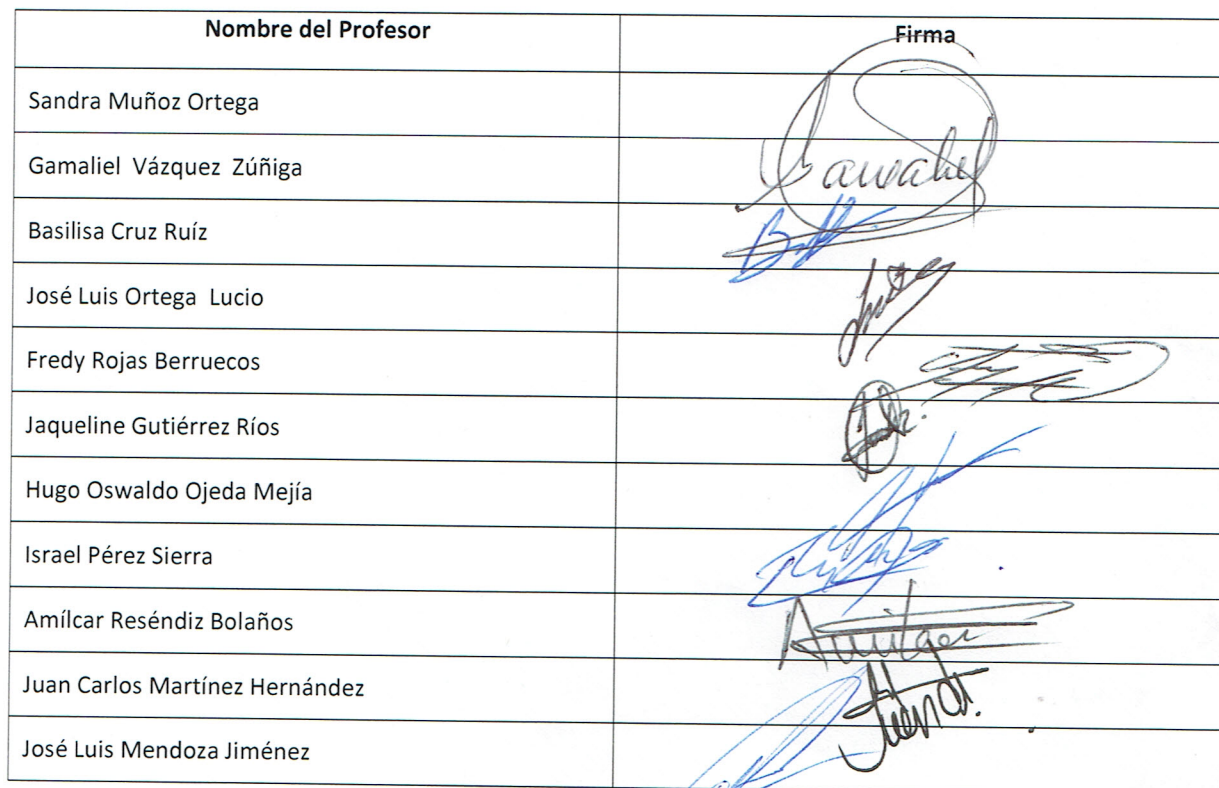 Nombre del Profesor Firma
Sandra Muñoz Ortega
Gamaliel Vázquez Zúñiga
Basilisa Cruz Ruíz
José Luis Ortega Lucio
Fredy Rojas Berruecos
Jaqueline Gutiérrez Ríos
Hugo Oswaldo Ojeda Mejía
Israel Pérez Sierra
Amílcar Reséndiz Bolaños
Juan Carlos Martínez Hernández
José Luis Mendoza Jiménez